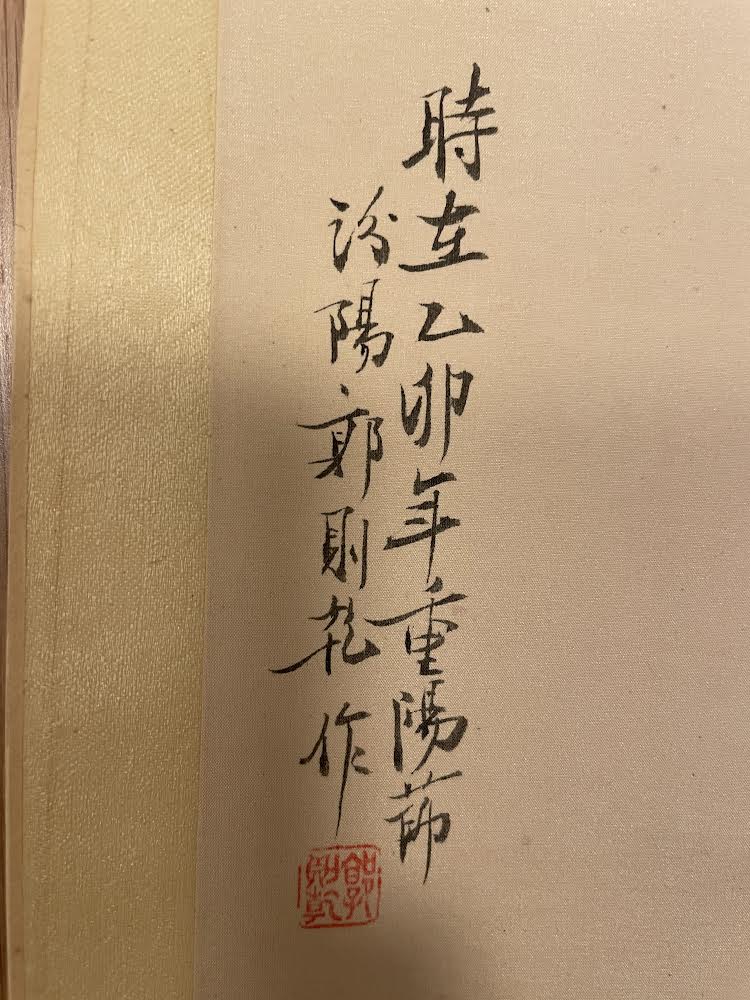 時在乙卯年重陽節
汾陽郭則乾作
郭則乾